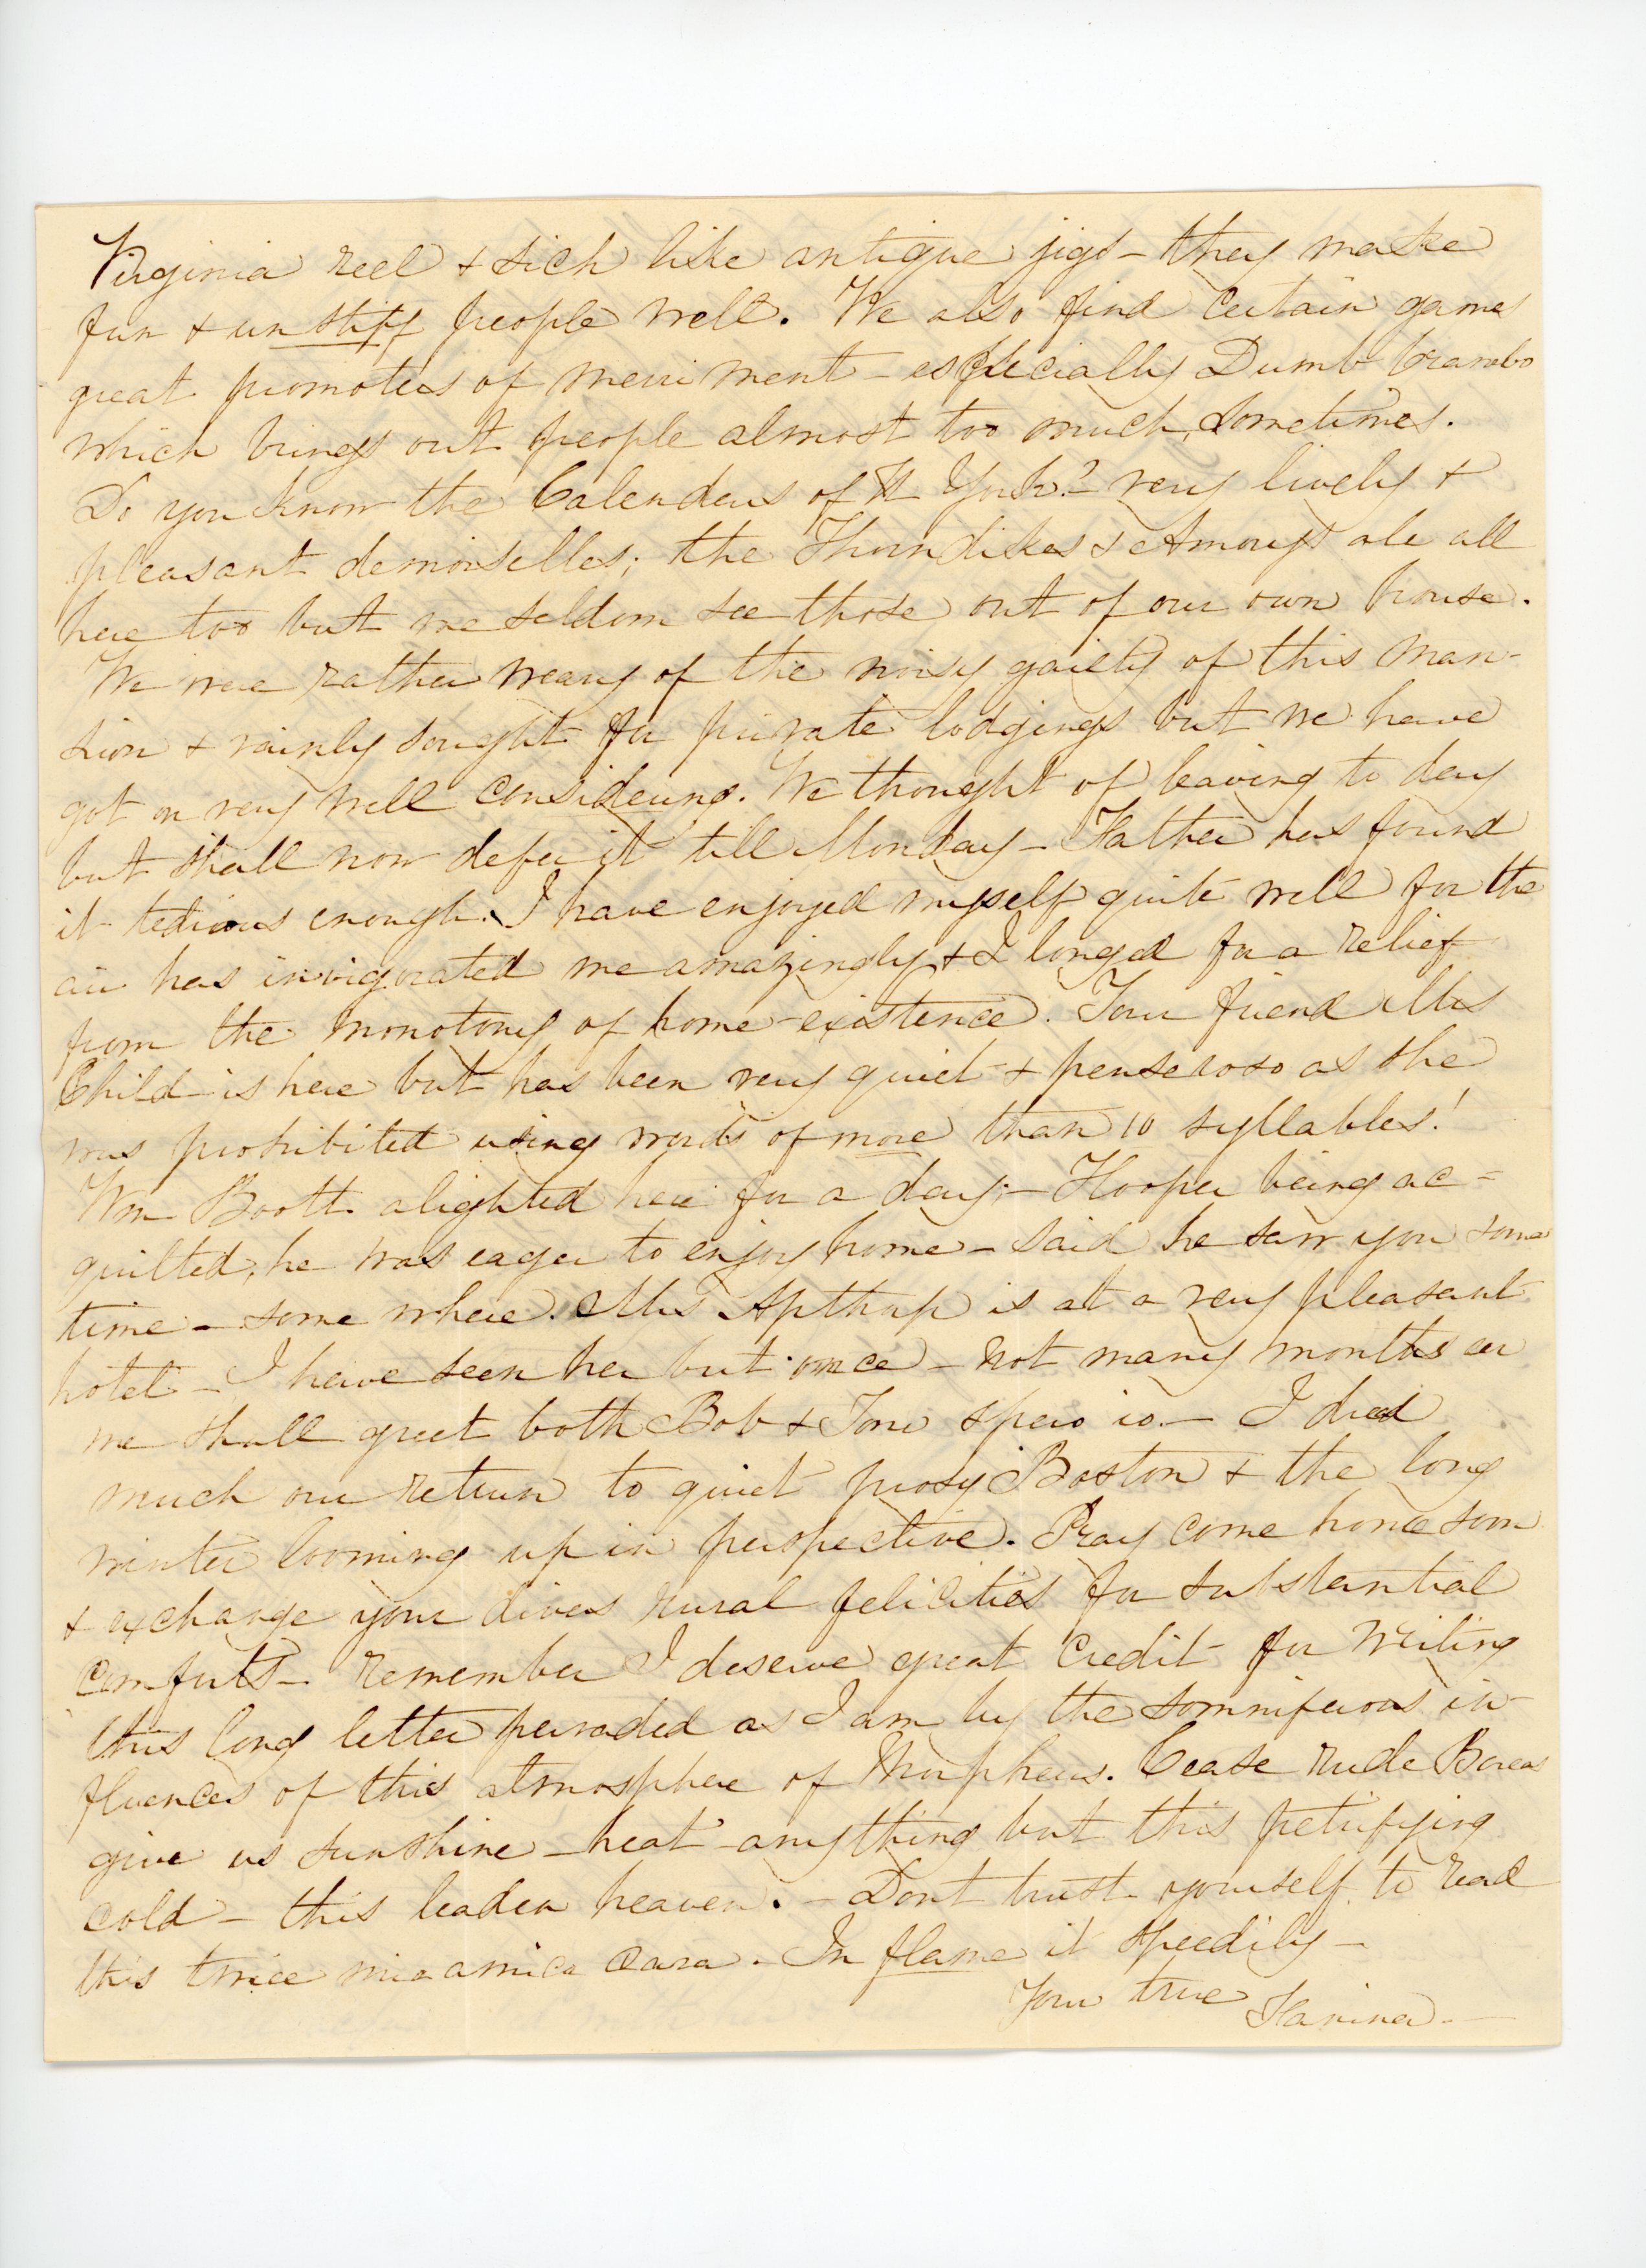 Virginia reel & sich like antique jigs – they make
fun & unstiff people well. We also find certain games
great promoters of merriment – especially Dumb Crambo
which brings out people almost too much, sometimes.
Do you know the Calendars of N York? – very lively &
pleasant demoiselles; the Thorndikes & Amorys are all
here too but we seldom see those out of our own house.
We were rather weary of the noisy gaiety of this man-
sion & vainly sought for private lodgings but we have
got on very well considering. We thought of leaving to day
but shall now defer it till Monday – Father has found
it tedious enough. I have enjoyed myself quite well for the
air has invigorated me amazingly & I longed for a relief
from the monotony of home-existence. Your friend Mrs
Child is here but has been very quiet & penseroso as she
was prohibited using words of more than 10 syllables!
Wm Boott alighted here for a day; – Hooper being ac=
quitted, he was eager to enjoy home – said he saw you some
time – some where. Mrs Apthorp is at a very pleasant
hotel – I have seen her but once – not many months ere
we shall greet both Bob & Tom spero io. – I dread
much our return to quiet prosy Boston & the long
winter looming up in perspective. Pray come home soon
& exchange your divers rural felicities for substantial
comforts – remember I deserve great credit for writing
this long letter pervaded as I am by the somniferous in-
fluences of this atmosphere of Morpheus. Cease rude Boreas
give us sunshine – heat – anything but this petrifying
cold – this leaden heaven. – Dont trust yourself to read
this twice mia amica cara. In flame it speedily –
Your true